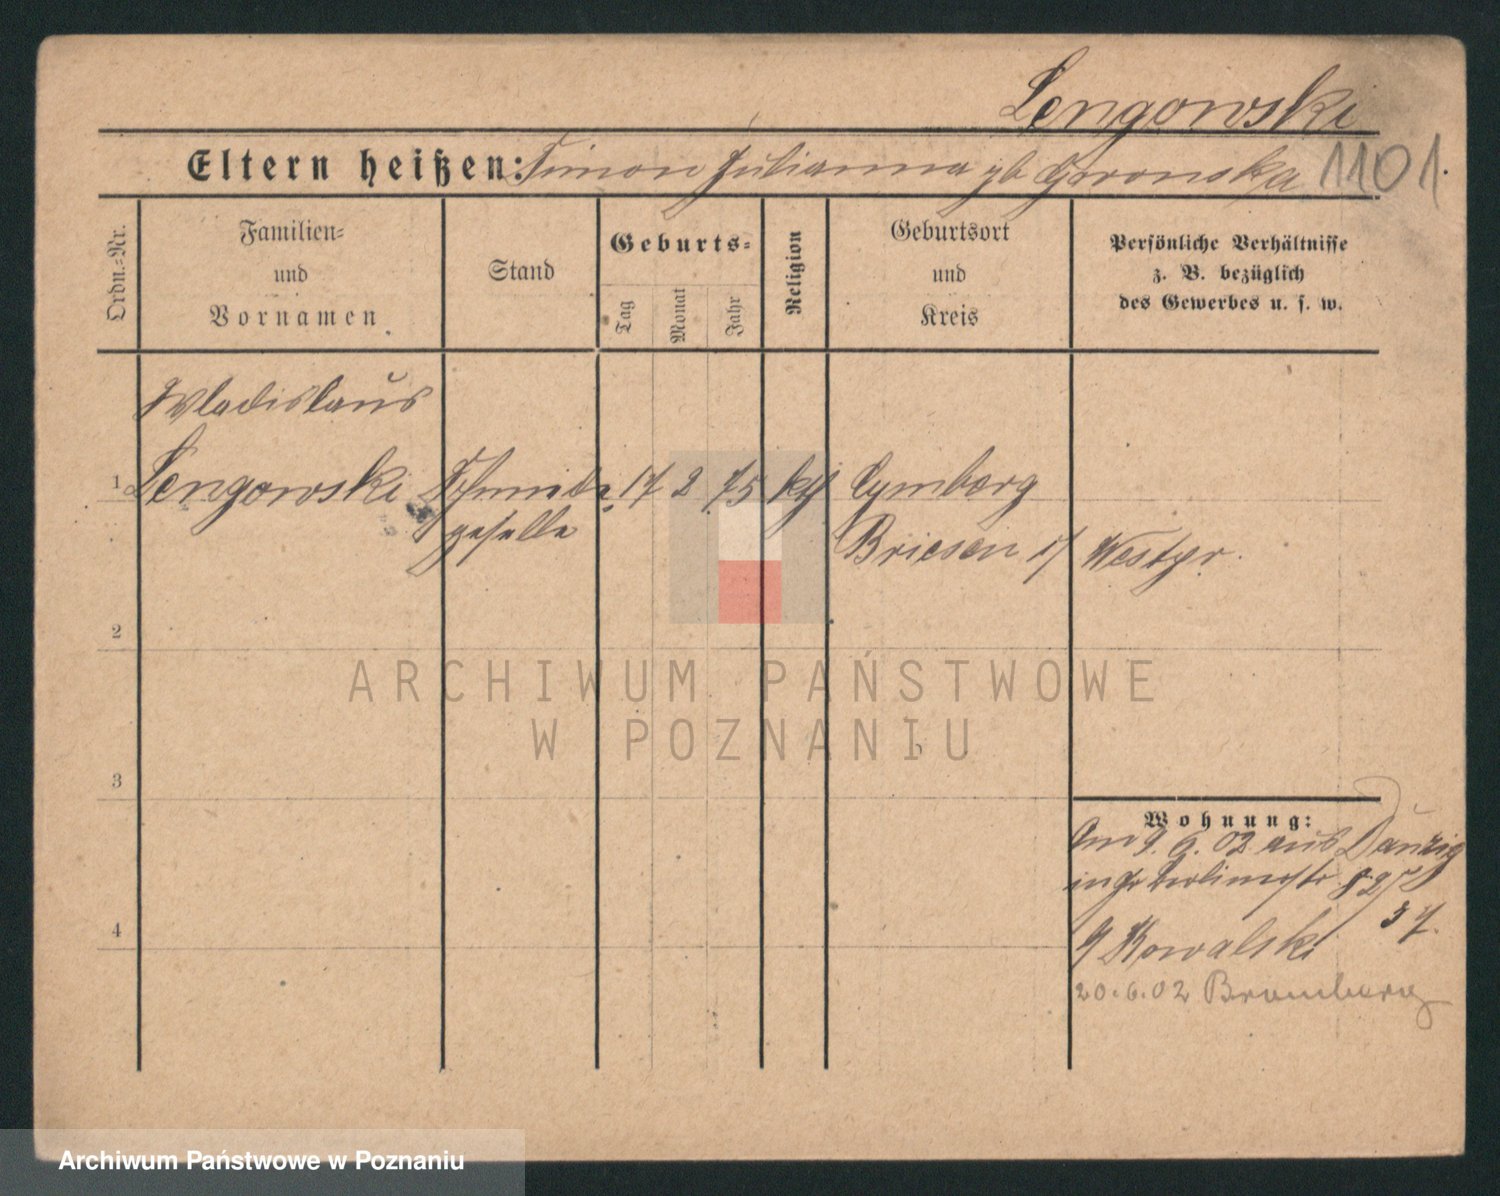 Lengowski
Eltern heißen: Simon Julianna gb Goronska 1101.
Ordn.-Nr.
Familien-
und
Vornamen
Stand
Geburts-
Tag
Monat
Jahr
Religion
Geburtsort
und
Kreis
Persönliche Verhältnisse
z. B. bezüglich
des Gewerbes u. s. w.
Wladislaus
1 Lengowski Schmiede 17 2 75 kth Cymberg
geselle Briesen i/ Westpr.
2
3
4
Wohnung:
Am 9. 6. 02 aus Danzig
in Gr Berlinerstr
37.
Kowalski
20.6.02 Bromberg
ARCHIWUM PAŃSTWOWE
W POZNANIU
Archiwum Państwowe w Poznaniu